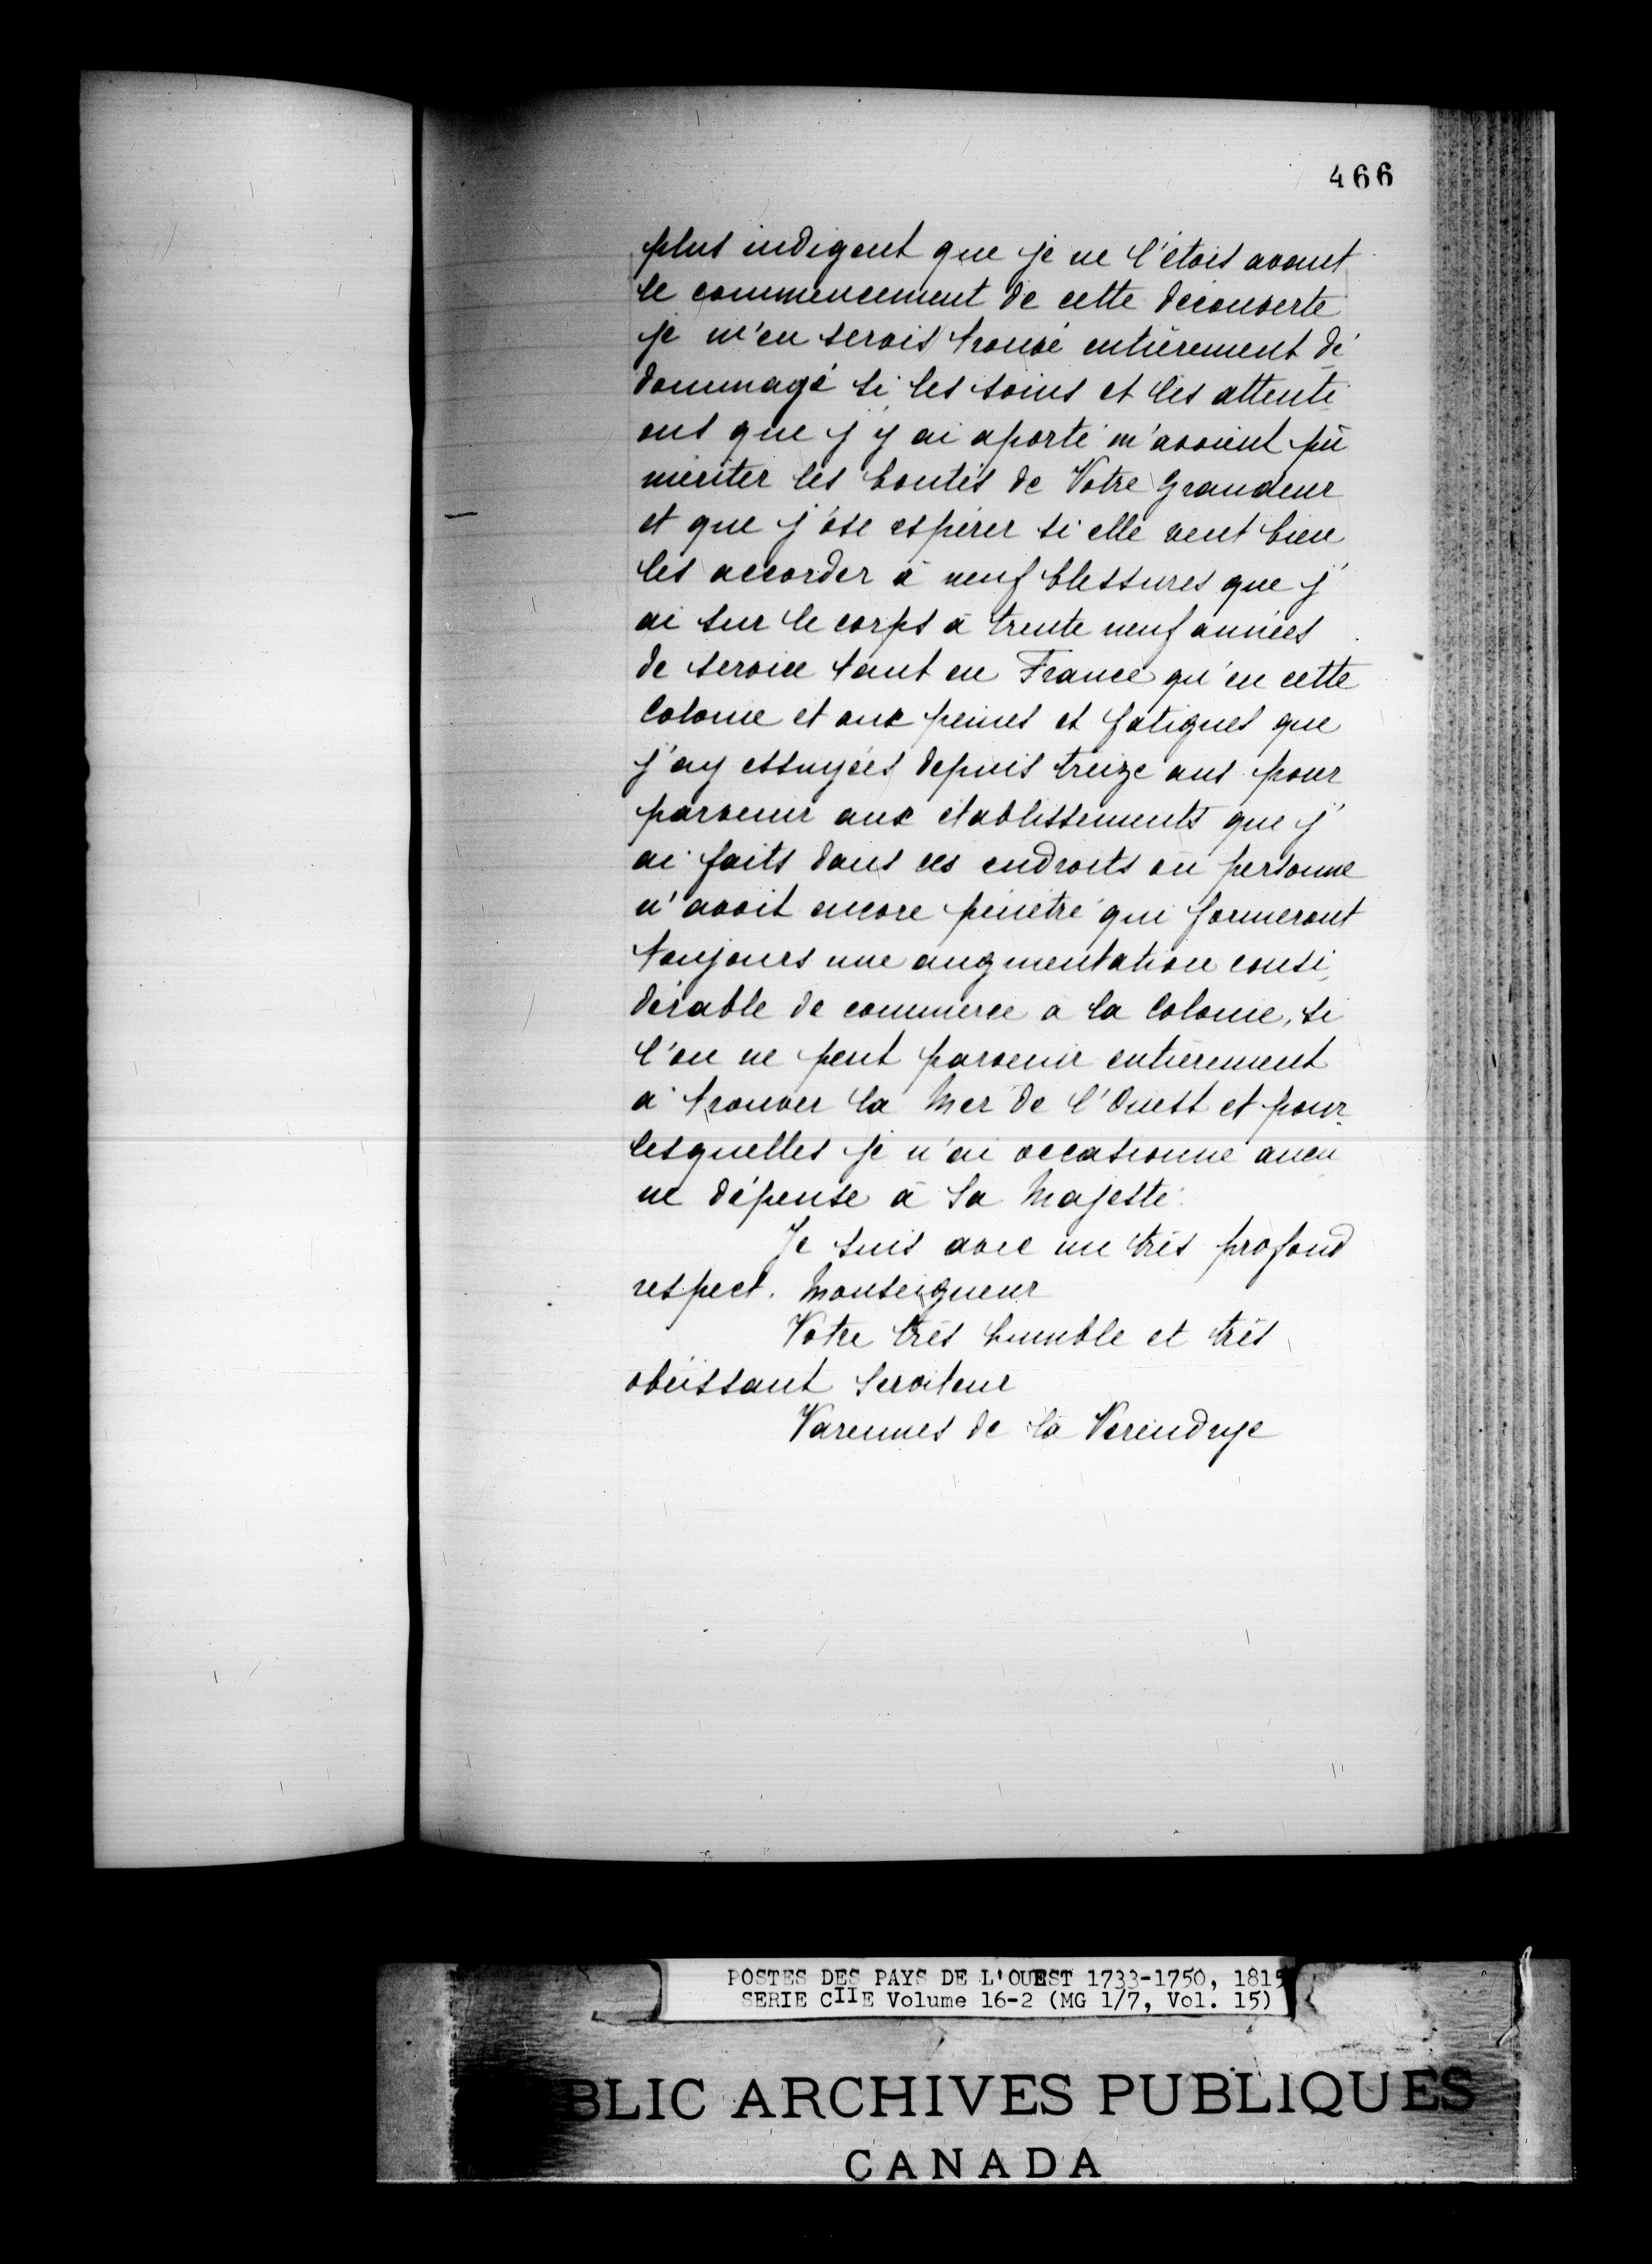 466
plus indigent que je ne l'étois avant
le commencement de cette découverte
je m'en serois trouvé entièrement dé
dommagé si les soins et les attenti
ons que j'y ai aporté m'avoient pû
mériter les bontés de Votre Grandeur
et que j'ose espérer si elle veut bien
les accorder à neuf blessures que j'
ai sur le corps à trente neuf années
de service tant en France qu'en cette
Colonie et aux peines et fatigues que
j'ay essuyées depuis treize ans pour
parvenir aux établissements que j'
ai faits dans ces endroits où personne
n'avoit encore pénétré qui formeront
toujours une augmentation consi
dérable de commerce à la Colonie, si
l'on ne peut parvenir entièrement
à trouver la Mer de l'Ouest et pour
lesquelles je n'ai occasionné aucu
ne dépense à Sa Majesté.
Je suis avec un très profond
respect. Monseigneur
Votre très humble et très
obéissant Serviteur
Varennes de la Verendrye
POSTES DES PAYS DE L'OUEST 1733-1750, 1815
SERIE CIIE Volume 16-2 (MG 1/7, Vol. 15)
BLIC ARCHIVES PUBLIQUES
CANADA